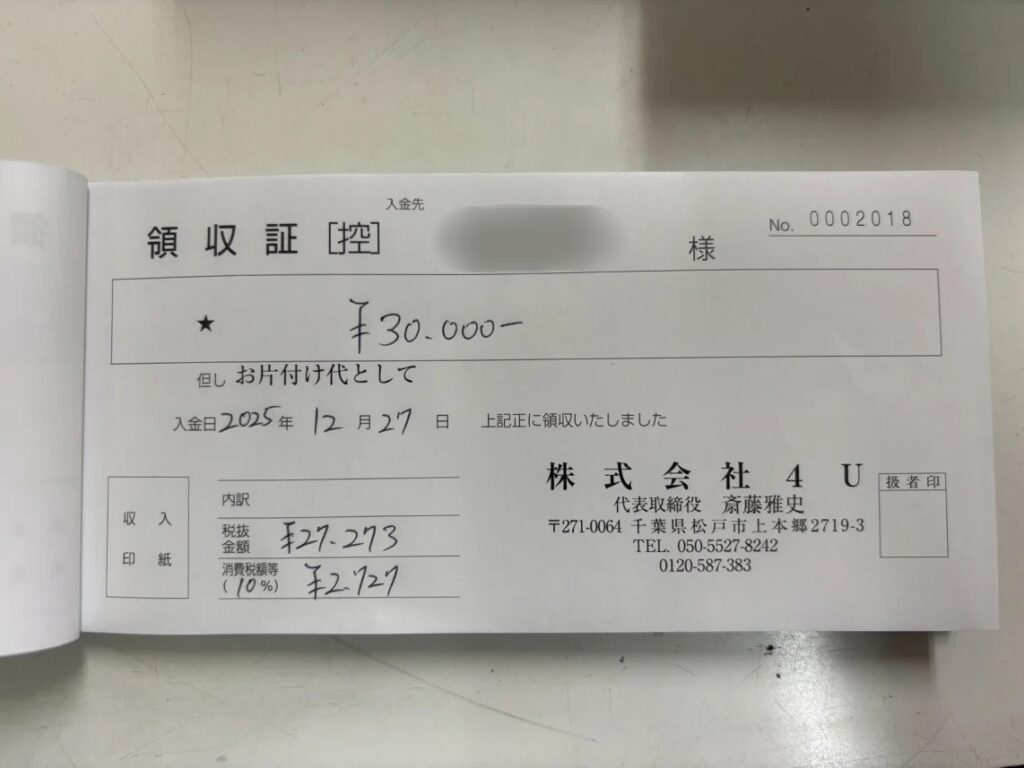 入金先
領収証 [控] 様 No. 0002018
★ ¥30.000-
但し お片付け代として
入金日 2025年 12月 27日 上記正に領収いたしました
収入
印紙
内訳
税抜
金額 ¥27.273
消費税額等
(10%) ¥2.727
株式会社4U
代表取締役 斎藤雅史
〒271-0064 千葉県松戸市上本郷2719-3
TEL. 050-5527-8242
0120-587-383
扱者印